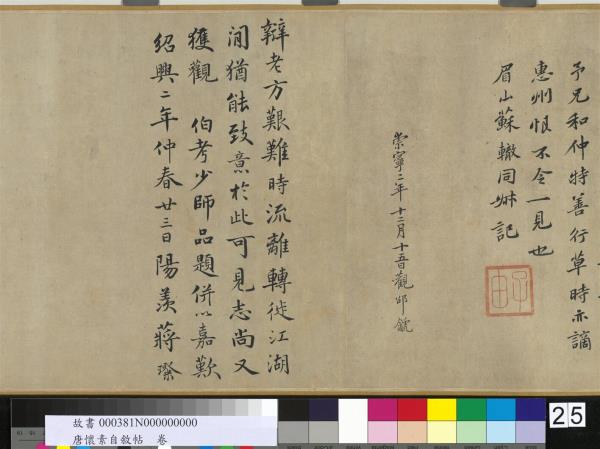 予兄和仲特善行草時亦謫
惠州恨不令一見也
眉山蘇轍同叔記
崇寧二年十二月十五日觀邵𩫰
辯老方艱難時流離轉徙江湖
間猶能致意於此可見志尚又
獲觀 伯考少師品題併以嘉歎
紹興二年仲春廿三日陽羨蔣璨
故書 000381N000000000
唐懷素自敘帖 卷
25